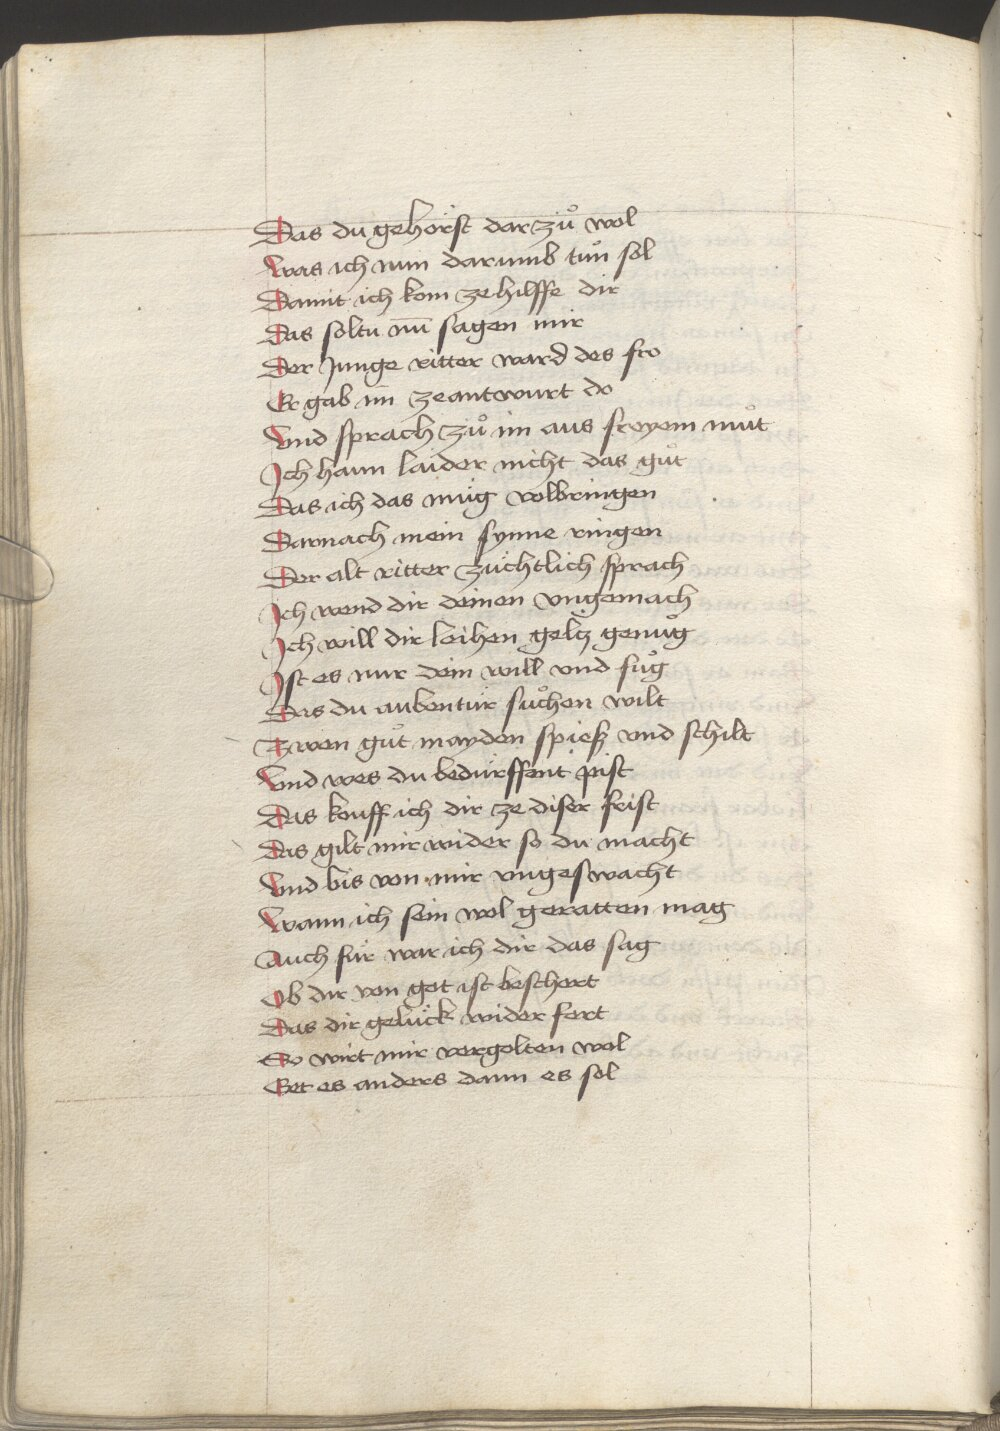 Das du gehörst dar zů wol
Was ich nun darumb tůn sol
Damit ich kom ze hilffe dir
Das soltu nū sagen mir
Der Junge ritter ward des fro
Er gab im ze antwurt do
Vnd sprach zů im aus freyem můt
Ich hann laider nicht das gůt
Das ich das müg volbringen
Darnach mein synne ringen
Der alt ritter züchtlich sprach
Ich wend dir deinen vngemach
Ich will dir leihen geltz genůg
Ist es nur dein will vnd fůg
Das du aubentür sůchen wilt
Zwen gůt mayden spiesz vnd schilt
Vnd wes du bedürffent pist
Das kouff ich dir ze diser frist
Das gilt mir wider so du macht
Vnd bis von mir vngeswacht
Wann ich sein wol geratten mag
Auch für war ich dir das sag
Ob dir von got ist beschert
Das dir gelück wider fert
So wirt mir vergolten wol
Get es anders dann es sol